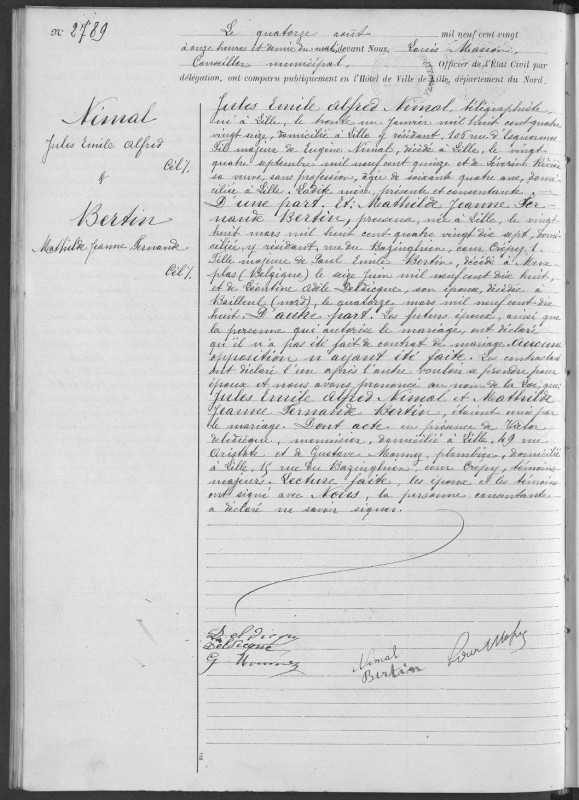 N° 2789
Le quatorze août mil neuf cent vingt
à onze heures et demie du matin, devant Nous, Louis Masson,
Conseiller municipal, Officier de l'État Civil par
délégation, ont comparu publiquement en l'Hôtel de Ville de Lille, département du Nord,
Nimal
Jules Emile Alfred
Cél.
&
Bertin
Mathilde Jeanne Fernande
Cél.
Jules Emile Alfred Nimal, télégraphiste,
né à Lille, le trente un Janvier mil huit cent quatre
vingt seize, domicilié à Lille y résidant, 106 rue d'Esquermes
Fils majeur de Eugène Nimal, décédé à Lille, le vingt
quatre septembre mil neuf cent quinze et de Séverine
sa veuve, sans profession, âgée de soixante quatre ans, domi-
ciliée à Lille. Ladite mère, présente et consentante
D'une part. Et, Mathilde Jeanne Fer-
nande Bertin, née à Lille, le vingt
huit mars mil huit cent quatre vingt dix sept, domi-
ciliée, y résidant, rue du Bazinghien, cour Crépy, 1.
Fille majeure de Paul Emile Bertin, décédé à Merx-
plas (Belgique) le seize Juin mil neuf cent dix huit,
et de Léontine Adèle Deldicque, son épouse, décédée à
Bailleul (nord), le quatorze mars mil neuf cent dix
huit. D'autre part. Les futurs époux, ainsi que
la personne qui autorise le mariage, ont déclaré
qu'il n'a pas été fait de contrat de mariage. Aucune
opposition n'ayant été faite. Les contractants
ont déclaré l'un après l'autre vouloir se prendre pour
époux et nous avons prononcé au nom de la Loi, que
Jules Emile Alfred Nimal et Mathilde
Jeanne Fernande Bertin, étaient unis par
le mariage. Dont acte en présence de Victor
deldicque, menuisier, domicilié à Lille, 49 rue
Aristote et de Gustave Monnez, plombier, domicilié
à Lille, 15 rue du Bazinghien, cour Crépy, témoins
majeurs. Lecture faite, les époux et les témoins
ont signé avec Nous, la personne consentante
a déclaré ne savoir signer.
Deldicque
G Monnez
Nimal
Bertin